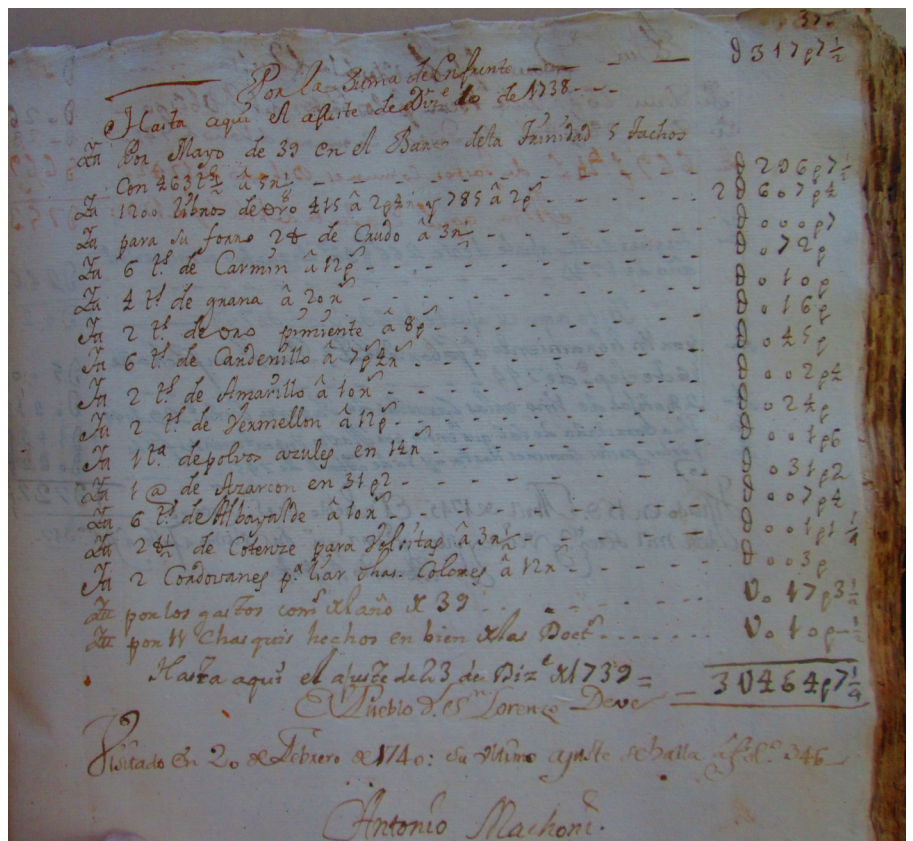 37
Por la suma de Enfrente — — U317p7½
Hasta aqui el ajuste de Diz.e de 1738 - - -
Itt Por Mayo de 39 en el Barco dela Trinidad 5 tachos
con 463 ½ â 5r½ - - - U296p7½
Itt 1200 libros de oro 415 â 2p4r y 785 â 2p.s - - - 2U607p4
Itt para su forro 2 de Crudo â 3r - - - U000p7
Itt 6 t.s de Carmin â 12p.s - - - U.72p
Itt 4 t.s de grana â 20r.s - - - U.10p
Itt 2 t.s de oro pimiente â 8p.s - - - U.16p
Itt 6 t.s de Cardenillo â 7p4r.s - - - U.45p
Itt 2 t.s de Amarillo â 10r.s - - - U..2p4
Itt 2 t.s de Vermellon â 12p.s - - - U.24p
Itt 1 t.a de polvos azules en 14r.s - - - U..1p6
Itt 1 @ de Azarcon en 31p2 - - - U.31p2
Itt 6 t.s de Albayalde â 10r.s - - - U..7p4
Itt 2 de Cotenze para â 3r½ - - - U..1p1¼
Itt 2 Cordovanes p.a liar dhas. Colores â 12r - - - U..3p
Itt por los gastos com.s del año de 39 - - - U.17p3½
Itt por W Chasquis hechos en bien de las Doct.s - - - U.10p-½
Hasta aqui el ajuste de 23 de Diz.e de 1739 = 3U464p7¼
El Pueblo d. S.n Lorenzo Deve
Visitado en 20 de Febrero de 1740: su ultimo ajuste se halla â fol.o 346
Antonio Machoni.